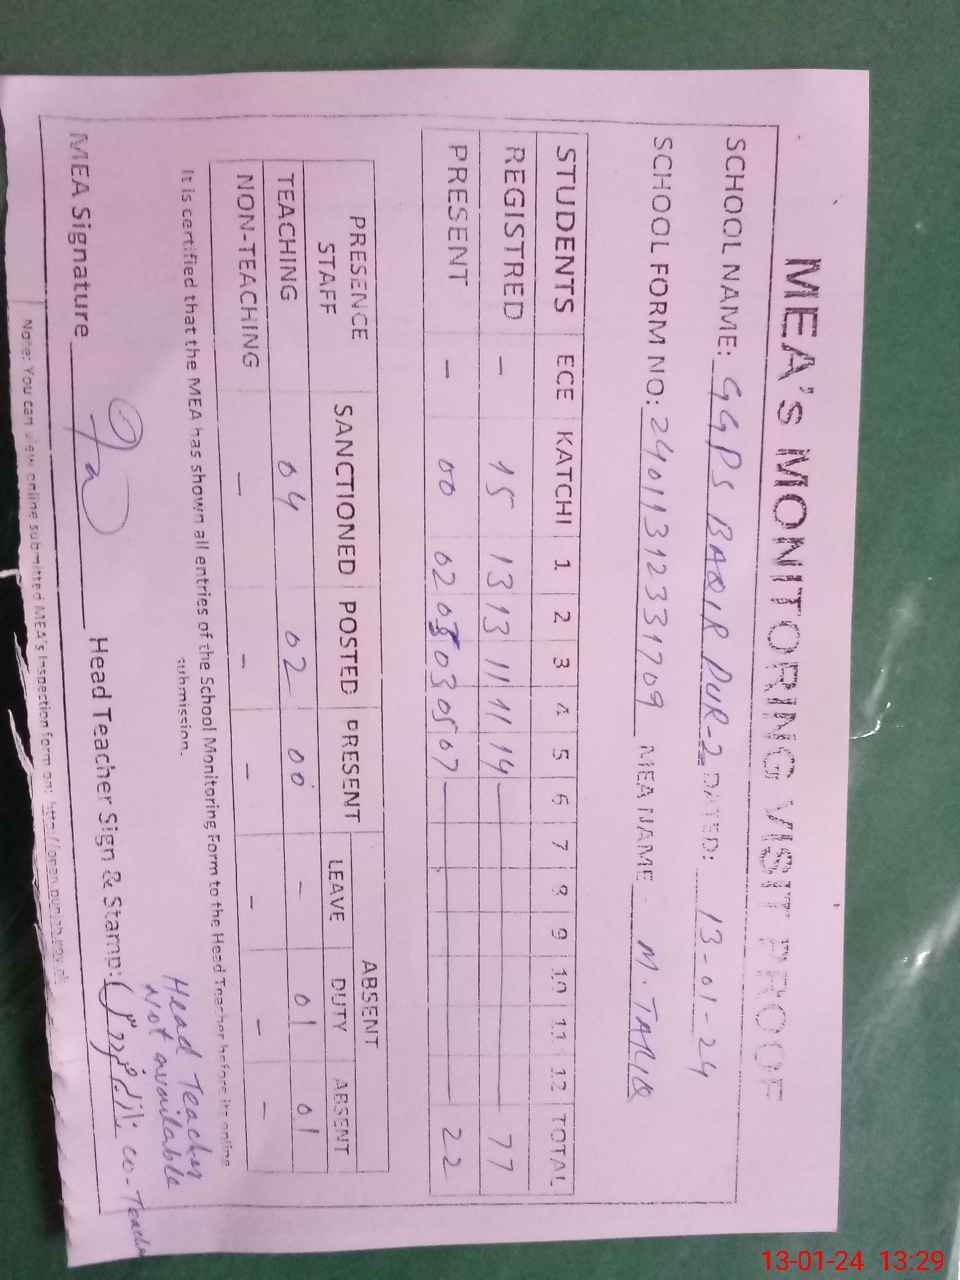 MEA's MONITORING VISIT PROOF
SCHOOL NAME: GGPS BAQIR PUR-2 DATED: 13-01-24
SCHOOL FORM NO: 24011312331709 MEA NAME M. TARIQ
STUDENTS ECE KATCHI 1 2 3 4 5 6 7 8 9 10 11 12 TOTAL
REGISTRED - 15 13 13 11 11 14 77
PRESENT - 00 02 03 03 05 07 22
PRESENCE STAFF SANCTIONED POSTED PRESENT ABSENT
LEAVE DUTY ABSENT
TEACHING 04 02 00 - 01 01
NON-TEACHING - - - - - -
It is certified that the MEA has shown all entries of the School Monitoring Form to the Head Teacher before its online
submission.
Head Teacher
Not available
MEA Signature Head Teacher Sign & Stamp: co-Teacher
Note: You can view online submitted MEA's Inspection form on: http://open.punjab.gov.pk
13-01-24 13:29